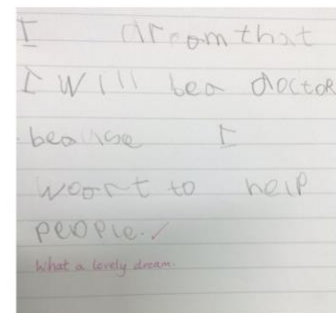 I dream that
I will be a doctor
beause I
woant to help
people.
What a lovely dream.